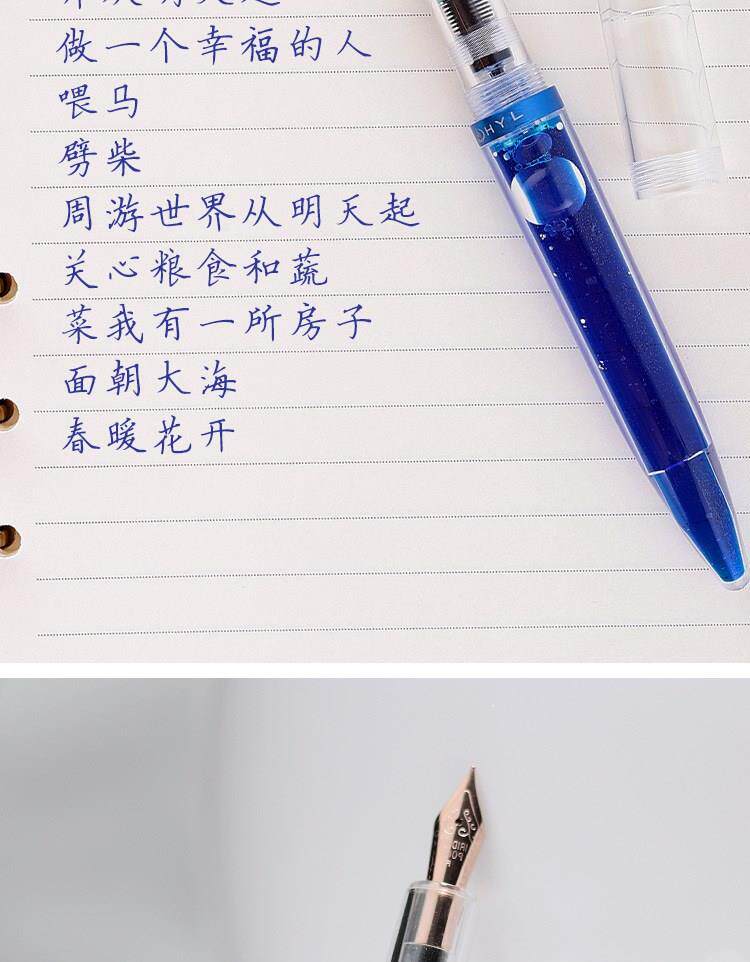 做一个幸福的人
喂马
劈柴
周游世界从明天起
关心粮食和蔬
菜我有一所房子
面朝大海
春暖花开
HYL